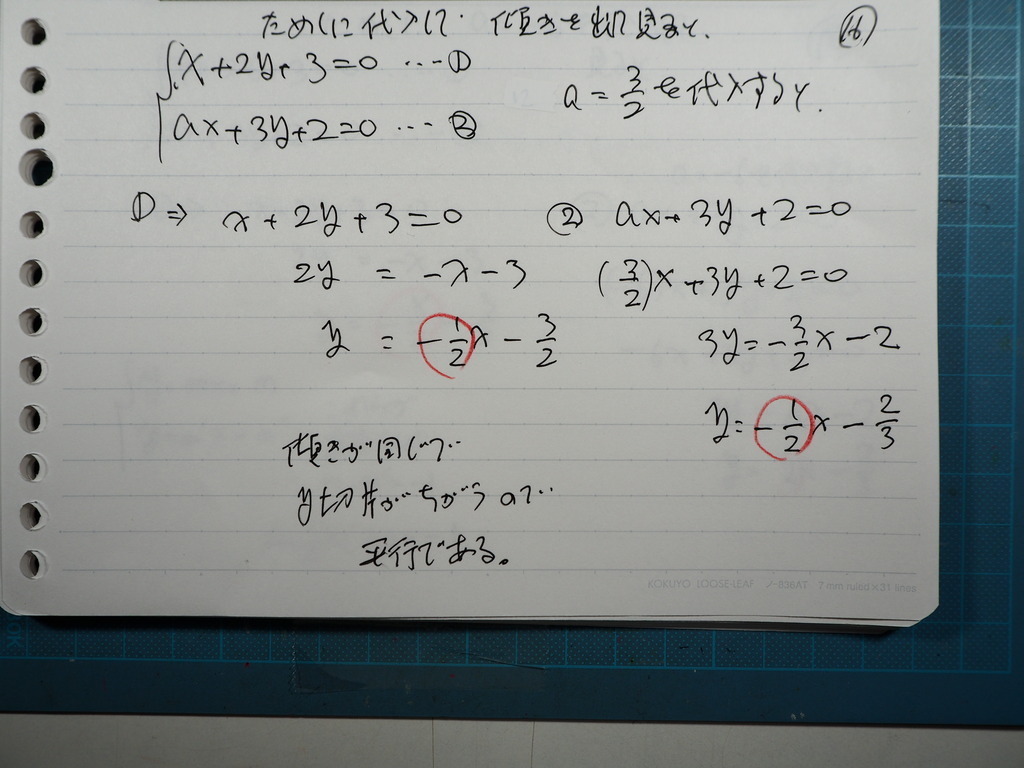 ためしに代入して. 傾きを出し見ると. 16
x+2y+3=0 ... ①
a=3/2を代入すると.
ax+3y+2=0 ... ②
① ⇒ x+2y+3=0
2y = -x-3
y = -1/2x - 3/2
② ax+3y+2=0
(3/2)x+3y+2=0
3y=-3/2x-2
y=-1/2x-2/3
傾きが同じで..
y切片がちがうので..
平行である。
KOKUYO LOOSE-LEAF ノ-836AT 7 mm ruled×31 lines